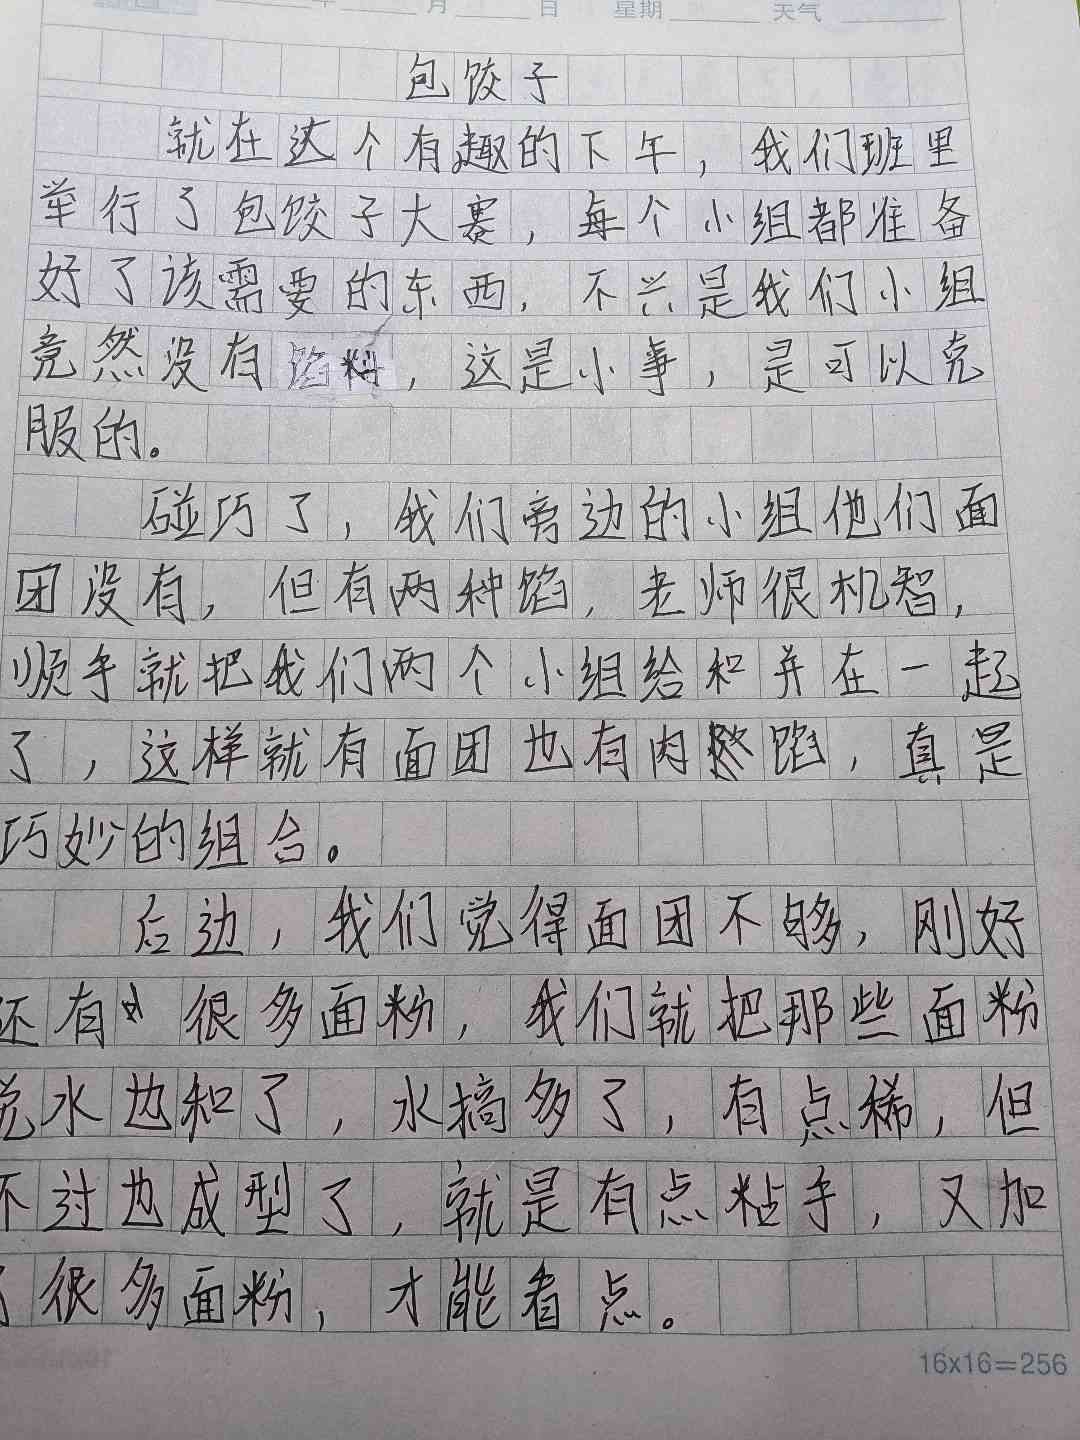 年 月 日 星期 天气
包饺子
就在这个有趣的下午，我们班里
举行了包饺子大赛，每个小组都准备
好了该需要的东西，不兴是我们小组
竟然没有馅料，这是小事，是可以克
服的。
碰巧了，我们旁边的小组他们面
团没有，但有两种馅，老师很机智，
顺手就把我们两个小组给和并在一起
了，这样就有面团也有肉馅，真是
巧妙的组合。
后边，我们觉得面团不够，刚好
还有很多面粉，我们就把那些面粉
水也和了，水搞多了，有点稀，但
不过也成型了，就是有点粘手，又加
了很多面粉，才能看点。
16x16=256